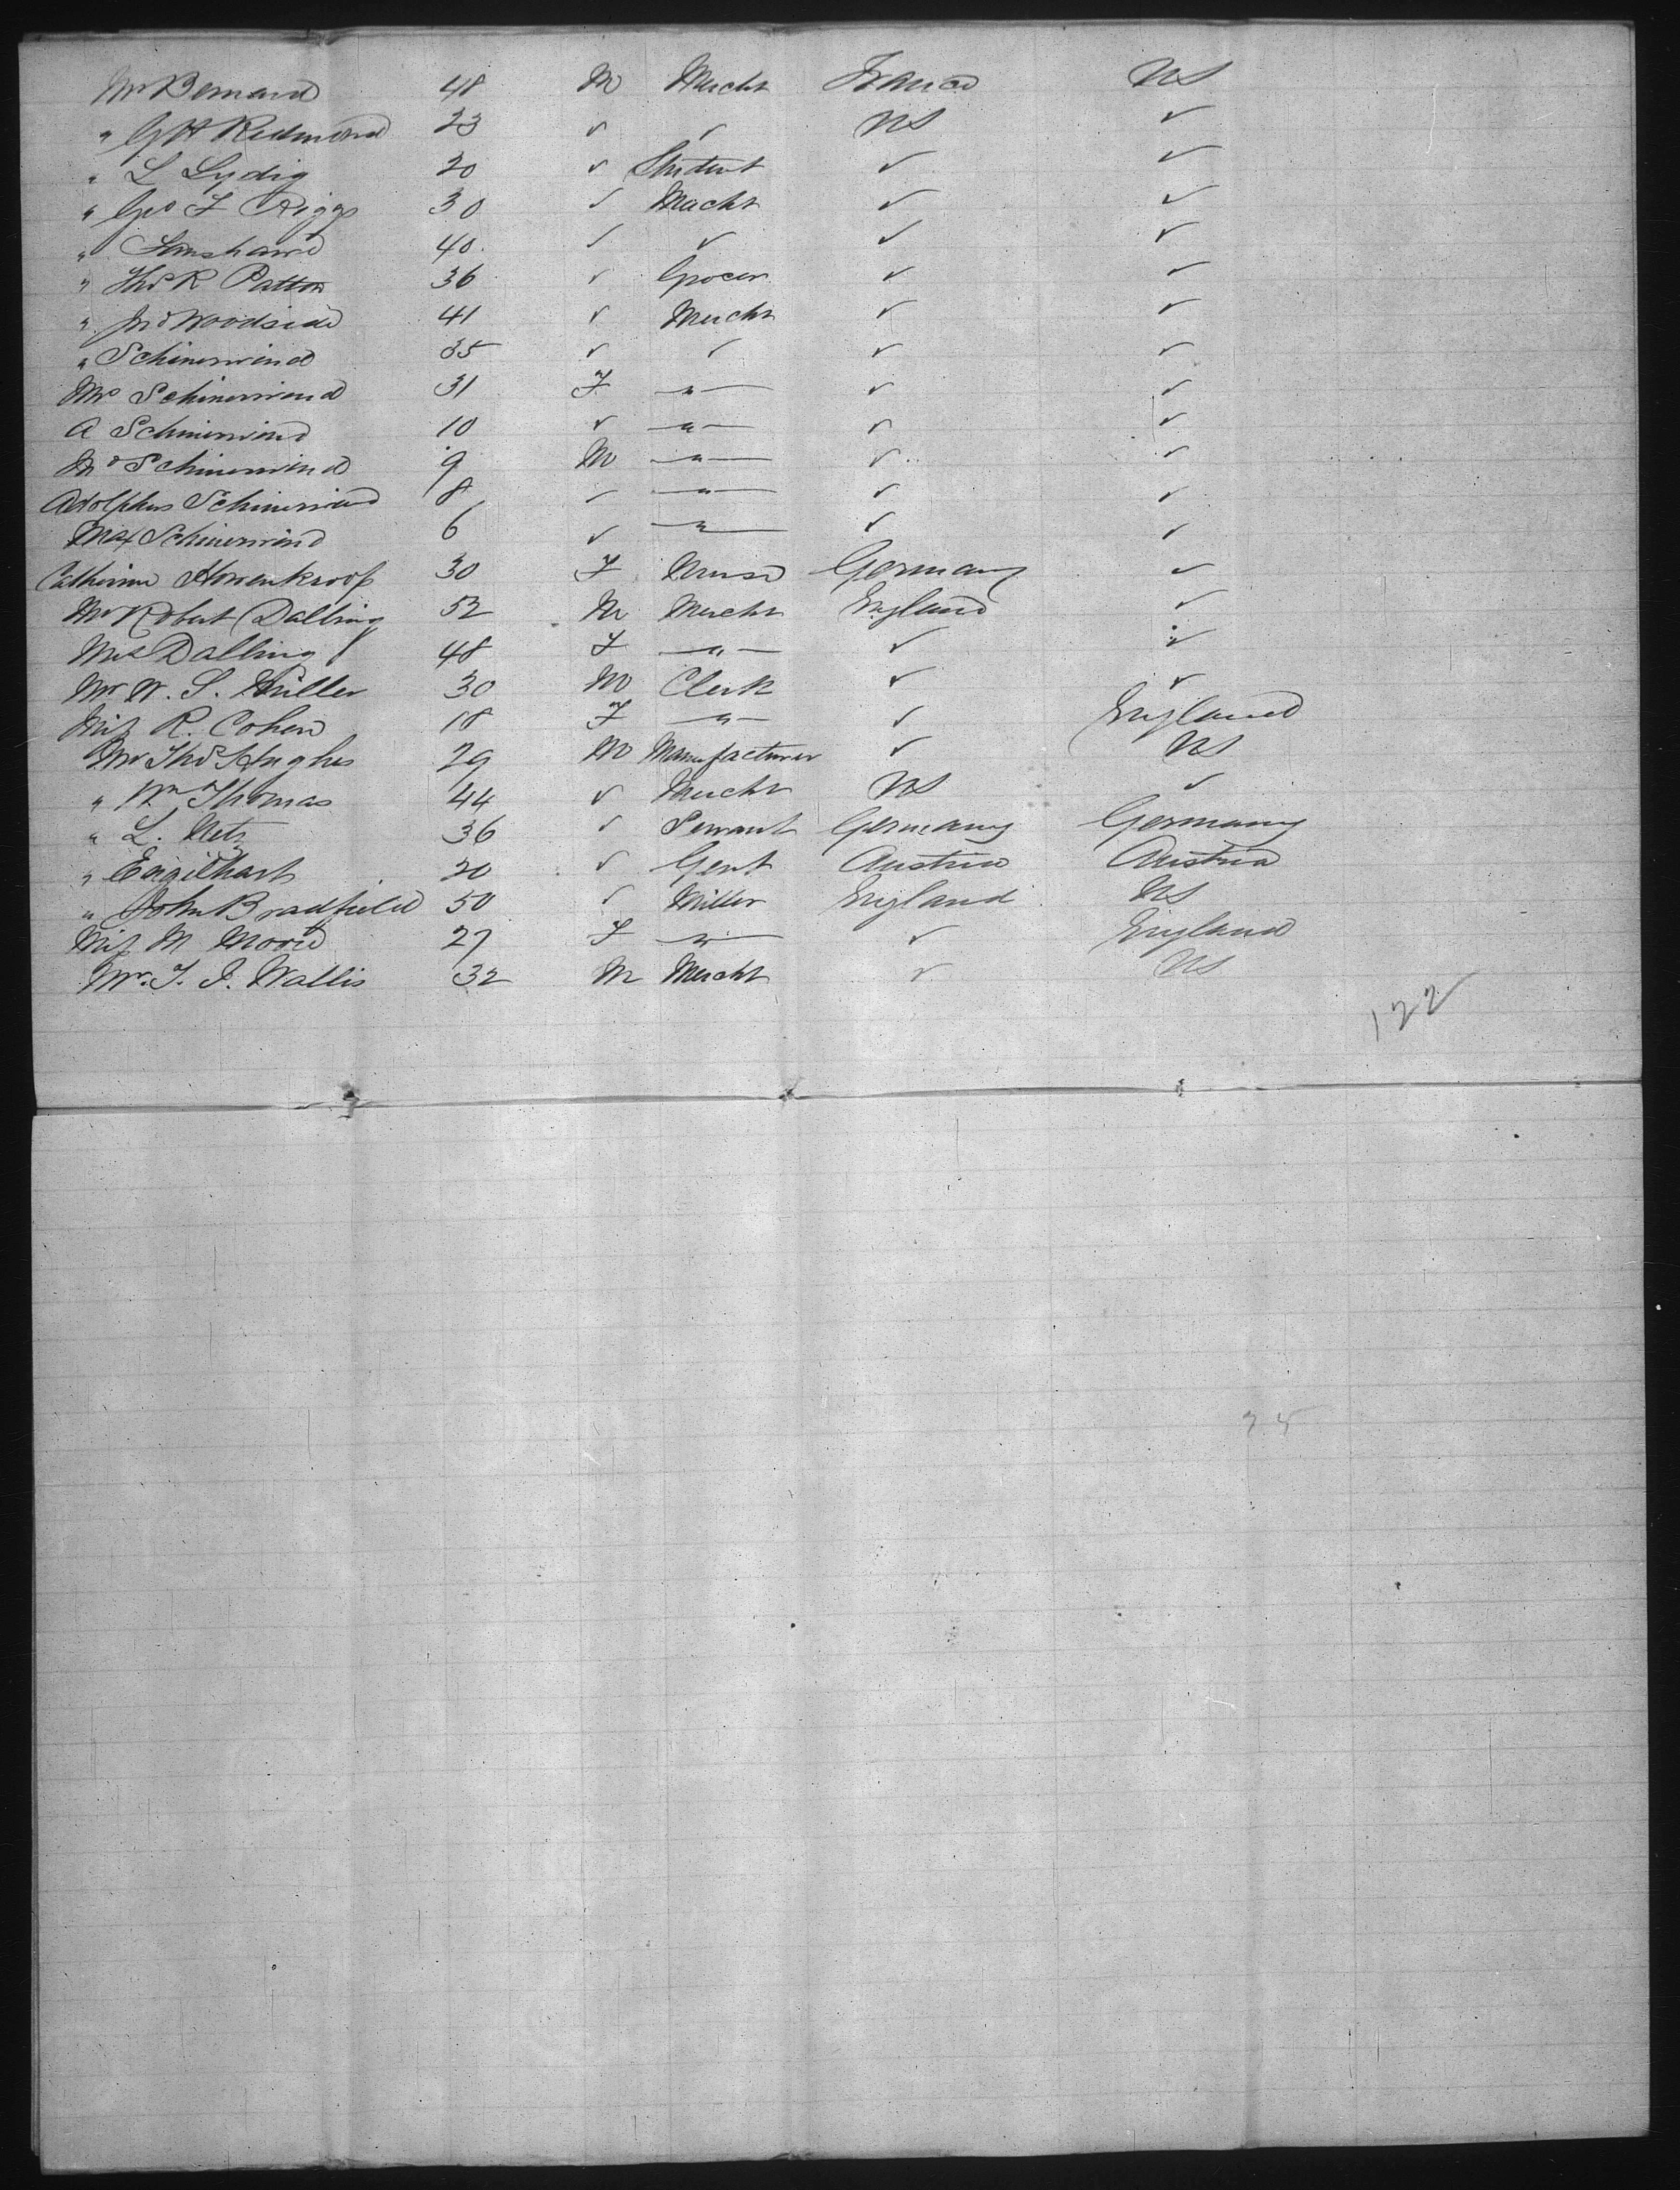 Mr Bernard 48 M Mercht France US
" G H Redmond 23 ✓ ✓ US ✓
" L Lydig 20 ✓ Student ✓ ✓
" Geo F Riggs 30 ✓ Mercht ✓ ✓
" 40 ✓ ✓ ✓ ✓
" Thos R Patton 36 ✓ Grocer ✓ ✓
" Jno Woodside 41 ✓ Mercht ✓ ✓
" Schinerwind 35 ✓ ✓ ✓ ✓
Mrs Schinerwind 31 F — " — ✓ ✓
A Schinerwind 10 ✓ — " — ✓ ✓
Schinerwind 9 M — " — ✓ ✓
Adolphus Schinerwind 8 ✓ — " — ✓ ✓
Max Schinerwind 6 ✓ — " — ✓ ✓
Catherine 30 F Nurse Germany ✓
Mr Robert Dalling 52 M Mercht England ✓
Mrs Dalling 48 F — " — ✓ ✓
Mr W. S. Miller 30 M Clerk ✓ ✓
Miss R. Cohen 18 F — " — ✓ England
Mr Thos Hughes 29 M Manufacturer ✓ US
" Wm Thomas 44 ✓ Mercht US ✓
" L. Netz 36 ✓ Servant Germany Germany
" Engelhart 20 ✓ Gent Austria Austria
" John Bradfield 50 ✓ Miller England US
Miss M Moore 27 F — " — ✓ England
Mr. T. J. Wallis 32 M Mercht ✓ US
122